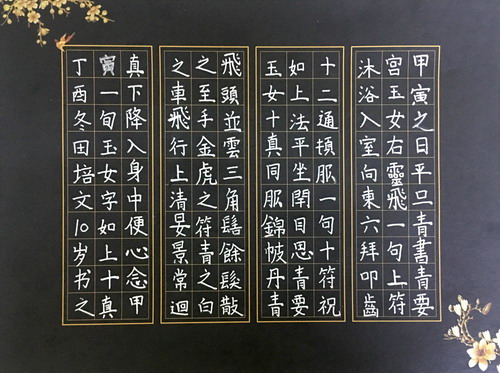 甲寅之日平旦青書青要
宮玉女右靈飛一旬上符
沐浴入室向東六拜叩齒
十二通頓服一旬十符祝
如上法平坐閉目思青要
玉女十真同服錦帔丹青
飛頭並雲三角髻餘髮散
之至手金虎之符青之白
之車飛行上清晏景常迴
真下降入身中便心念甲
寅一旬玉女字如上十真
丁酉冬田培文10岁书之